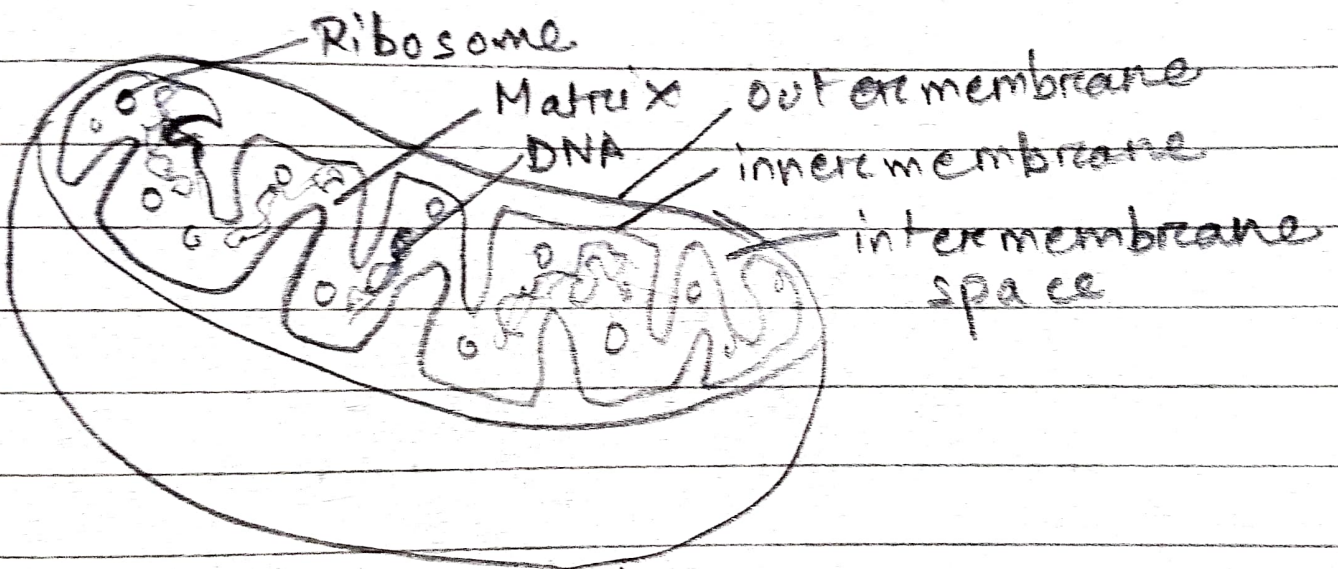 Ribosome
Matrix
outer membrane
DNA
inner membrane
inter membrane
space